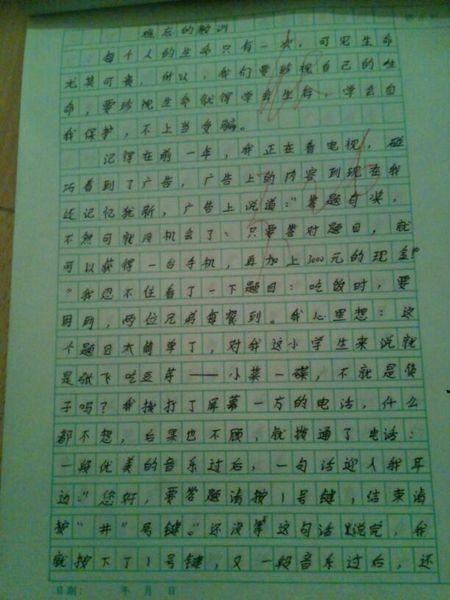 难忘的教训
每个人的生命只有一次,可见生命
尤其可贵,所以,我们要珍视自己的生
命,要珍视生命就得学会生存,学会自
我保护,不上当受骗。
记得在前一年,我正在看电视,碰
巧看到了广告,广告上的内容到现在我
还记忆犹新,广告上说道:“答题有奖,
不然可就没机会了:只要答对题目,就
可以获得一台手机,再加上3000元的现金”
“我忍不住看了一下题目:吃饭时,要
用到,两位兄弟每餐到。我心里想:这
个题目太简单了,对我这小学生来说就
是张飞吃豆芽——小菜一碟,不就是筷
子吗?我拨打了屏幕一方的电话,什么
都不想,后果也不顾,就拨通了电话:
一段优美的音乐过后,一句话迎入我耳
边:“您好,要答题请按1号键,结束请
按“井”号键。”还没等这句话说完,我
就按下了1号键,又一段音乐过后,还
日期: 年 月 日